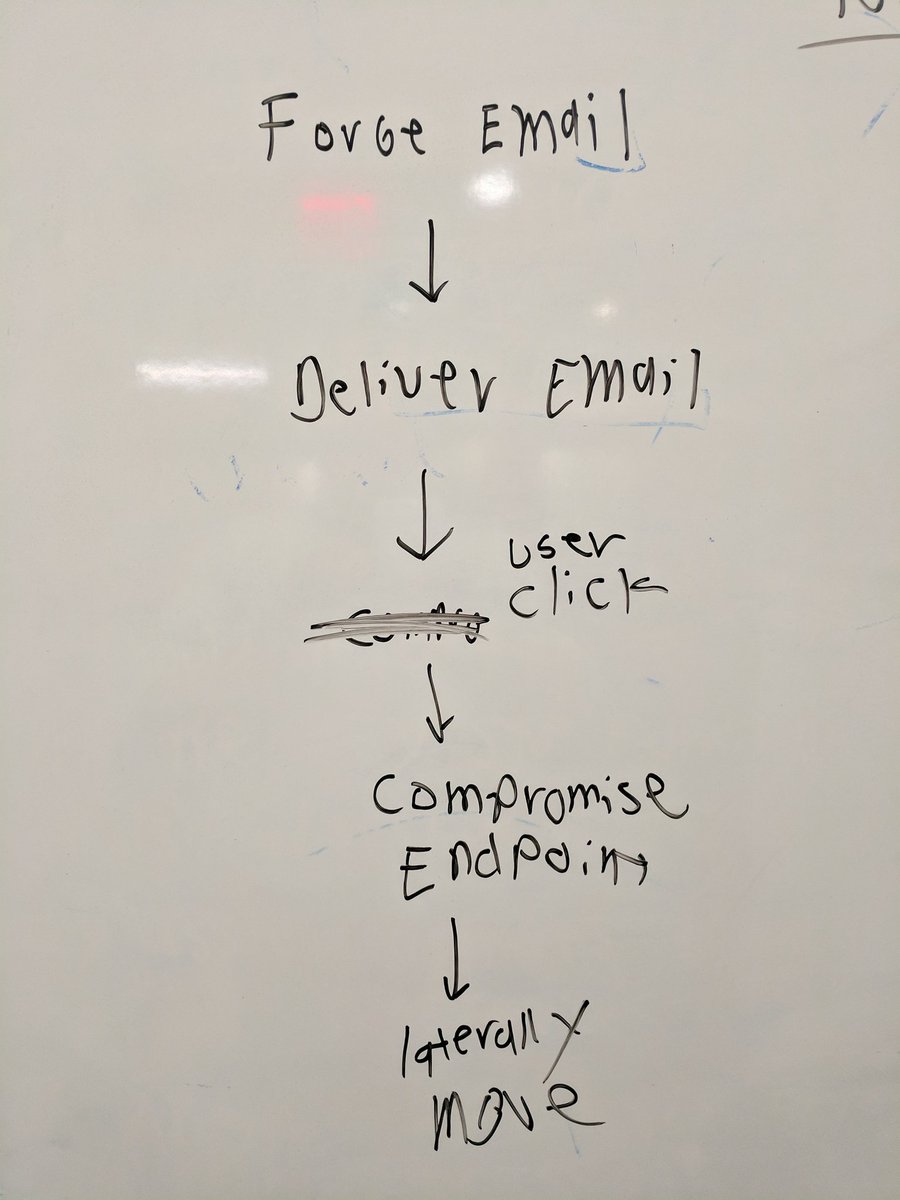 Forge Email
Deliver Email
user
click
Compromise
Endpoint
laterally
move